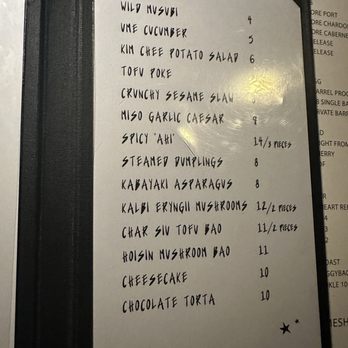 WILD MUSUBI 4
UME CUCUMBER 5
KIM CHEE POTATO SALAD 6
TOFU POKE
CRUNCHY SESAME SLAW
MISO GARLIC CAESAR 9
SPICY "AHI" 14/3 PIECES
STEAMED DUMPLINGS 8
KABAYAKI ASPARAGUS 8
KALBI ERYNGII MUSHROOMS 12/2 PIECES
CHAR SIU TOFU BAO 11/2 PIECES
HOISIN MUSHROOM BAO 11
CHEESECAKE 10
CHOCOLATE TORTA 10
ORE PORT
ORE CHARDO
ORE CABERNE
RELEASE
RELEASE
BARREL PROO
SINGLE BA
RIVATE BARR
IGHT FROM
ERRY
OF
HEART RE
OAST
GGYBAC
NKLE 10
MESH